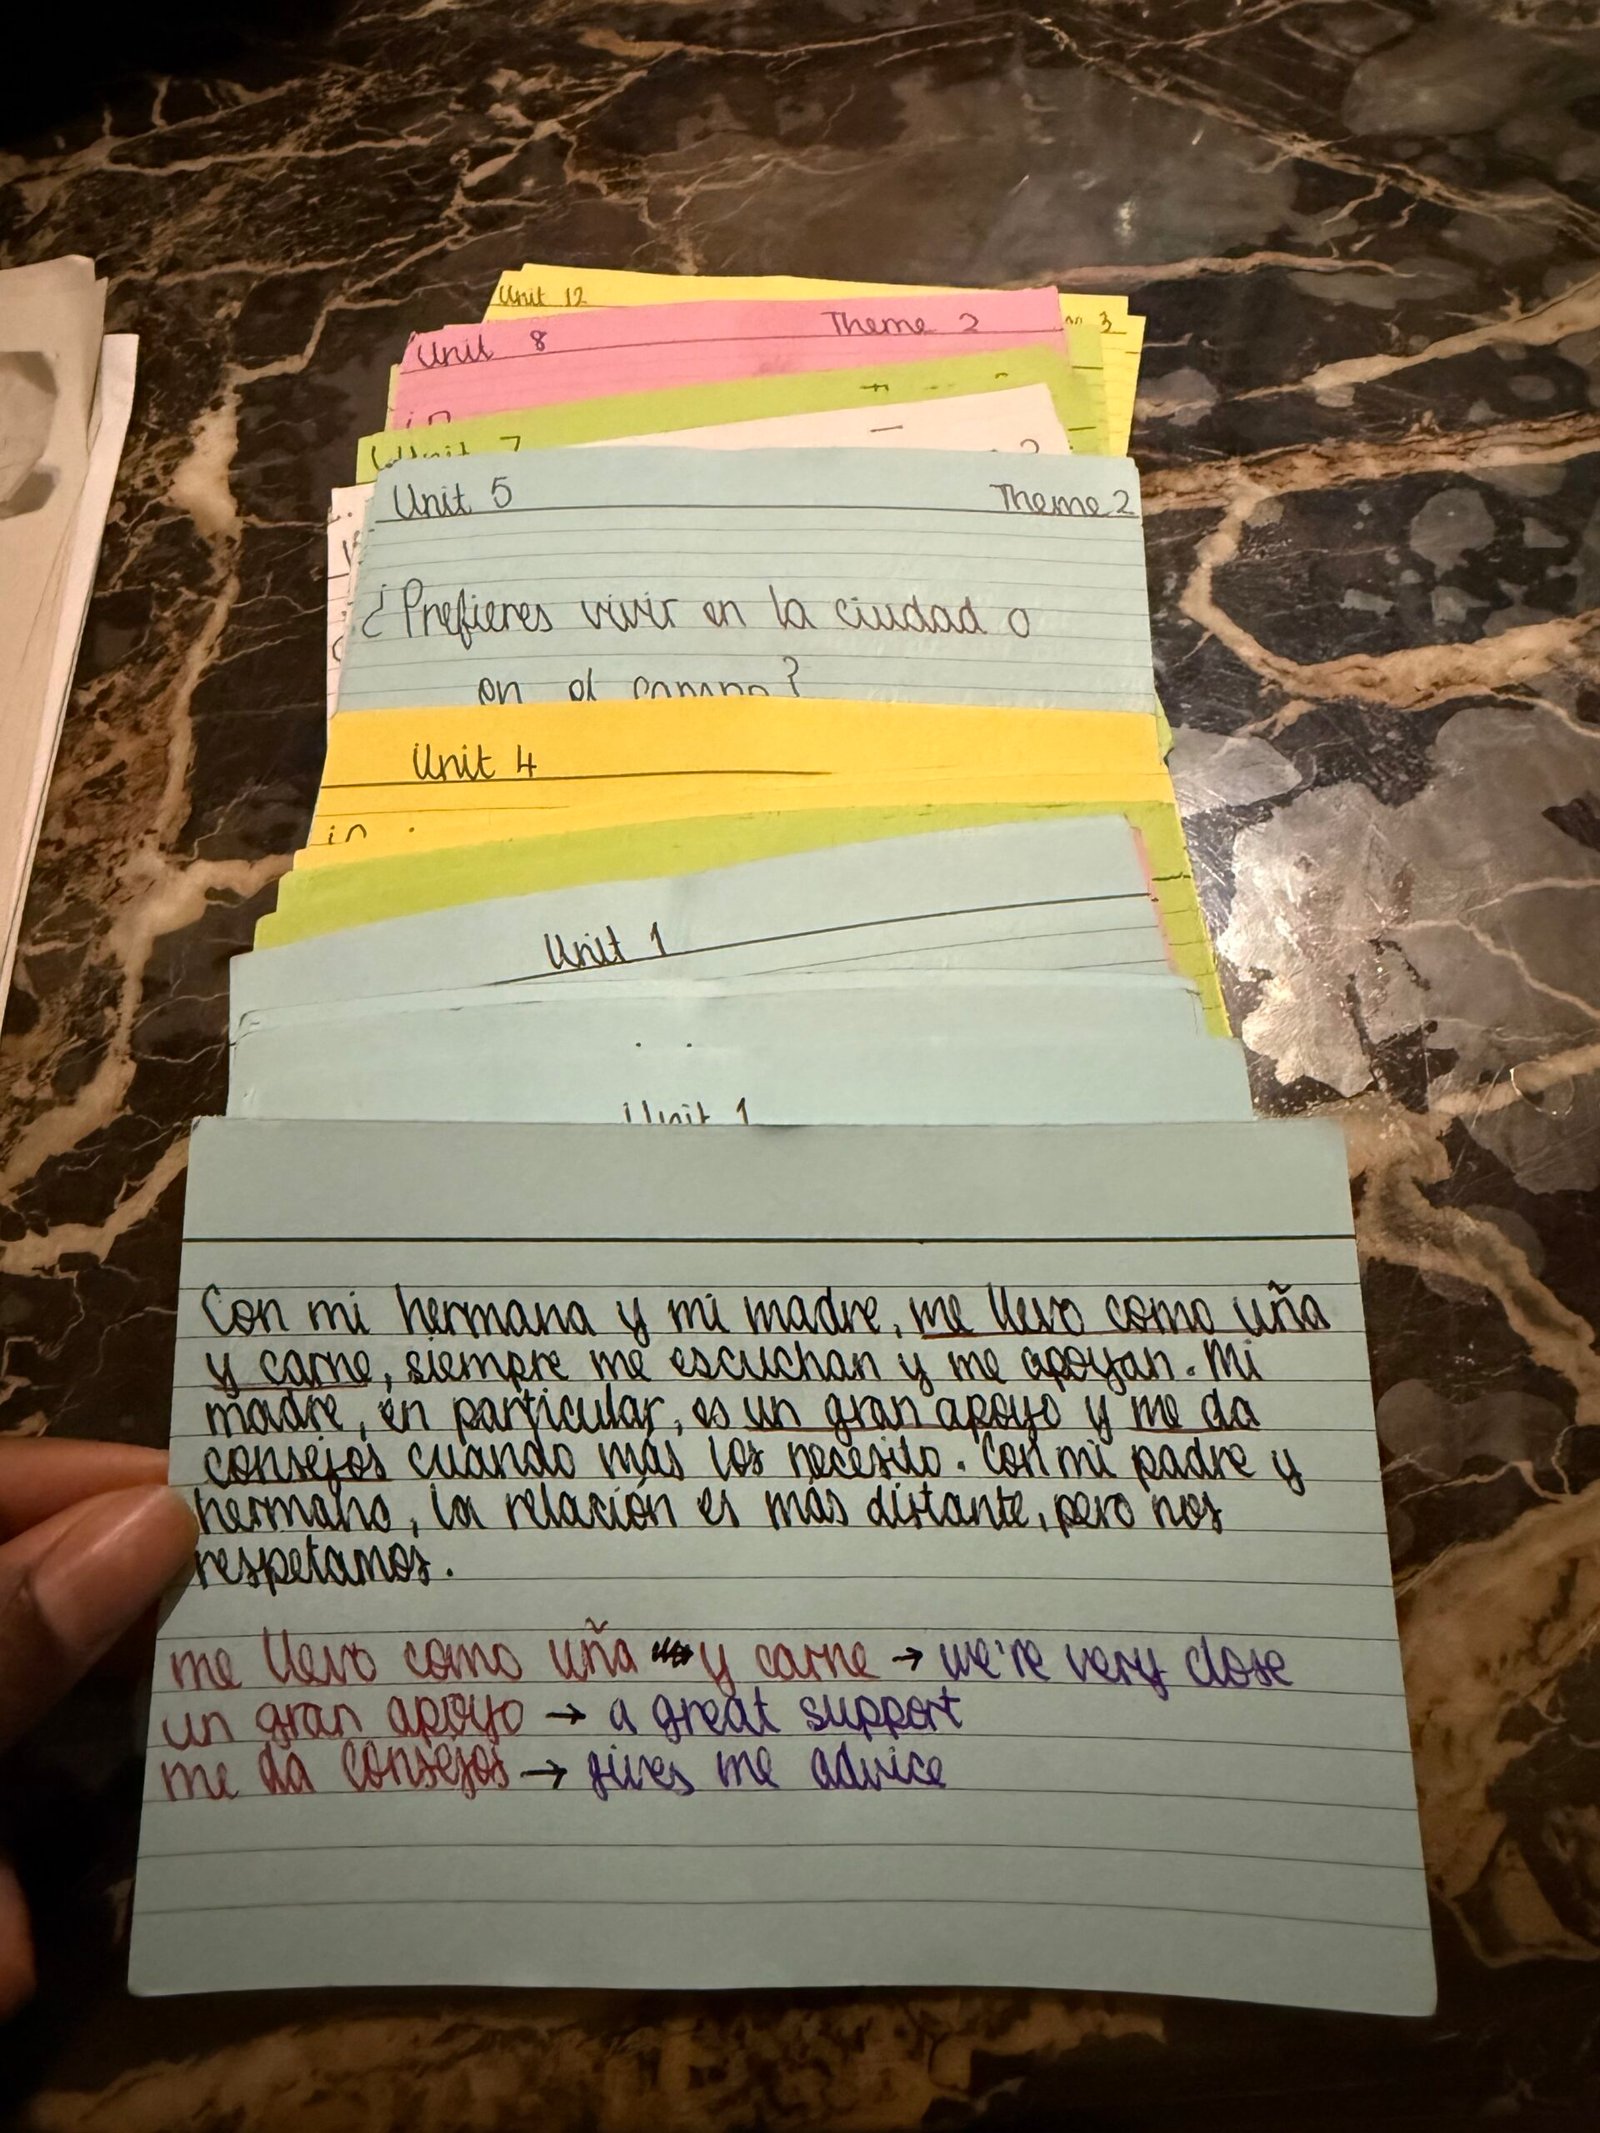 Unit 12
Unit 8 Theme 2
3
Unit 7
Unit 5 Theme 2
¿Prefieres vivir en la ciudad o
en el campo?
Unit 4
Unit 1
Unit 1
Con mi hermana y mi madre, me llevo como uña
y carne, siempre me escuchan y me apoyan. Mi
madre, en particular, es un gran apoyo y me da
consejos cuando más los necesito. Con mi padre y
hermano, la relación es más distante, pero nos
respetamos.
me llevo como uña y carne → we're very close
un gran apoyo → a great support
me da consejos → gives me advice